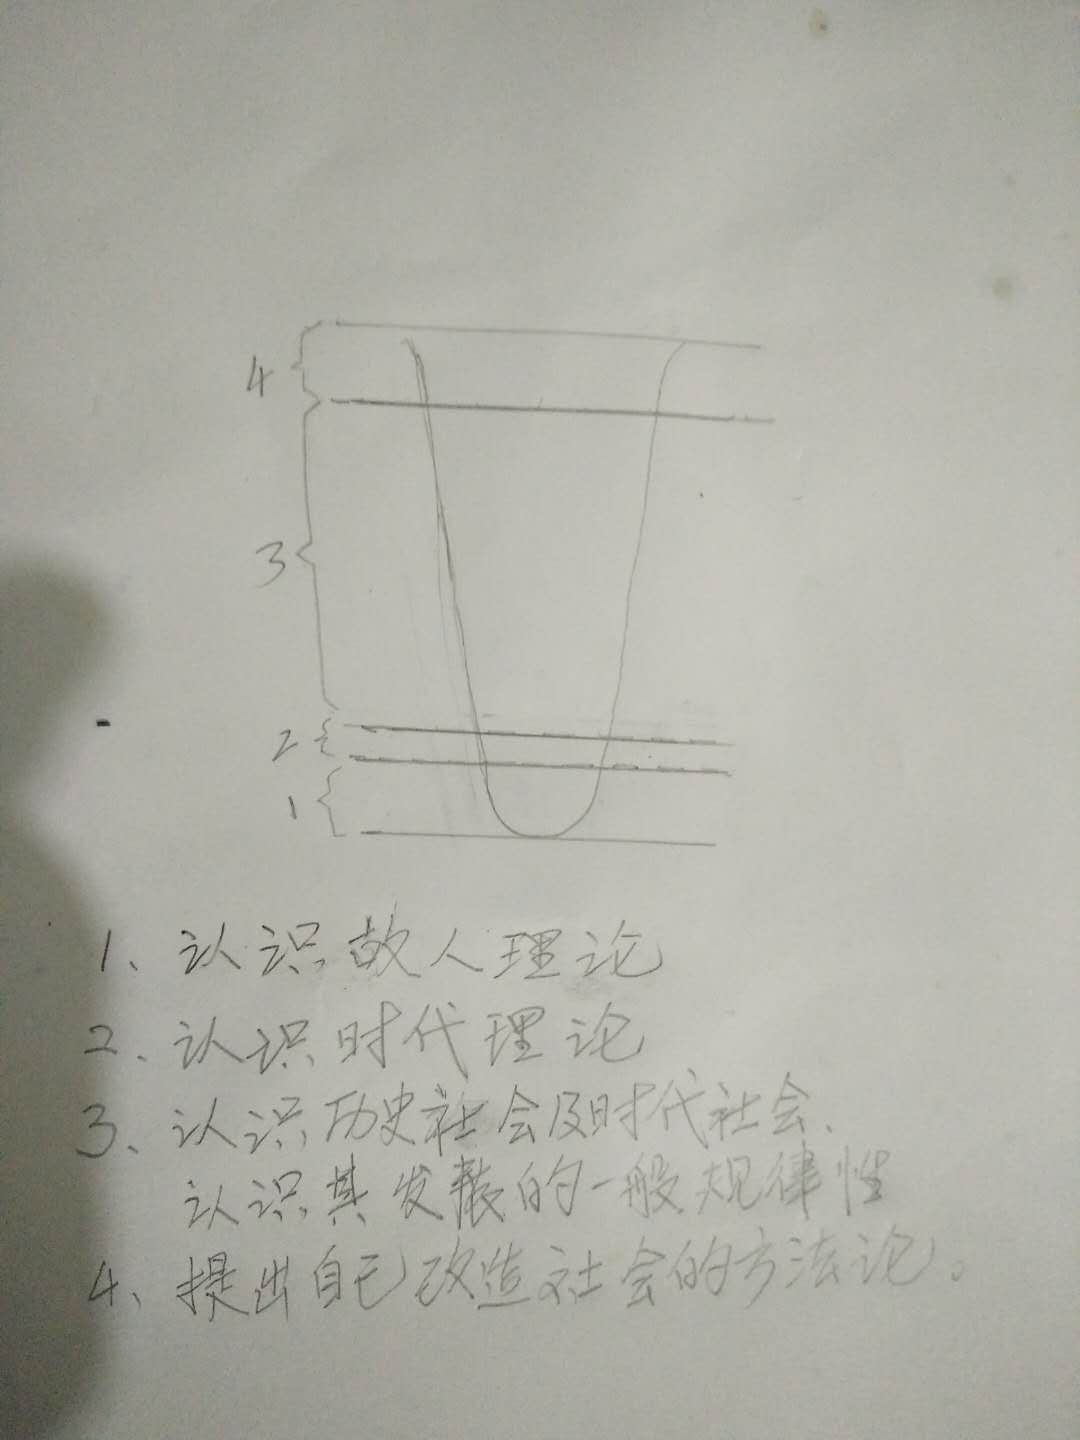 4
3
2
1
1、认识故人理论
2、认识时代理论
3、认识历史社会及时代社会、
认识其发散的一般规律性
4、提出自己改造社会的方法论。